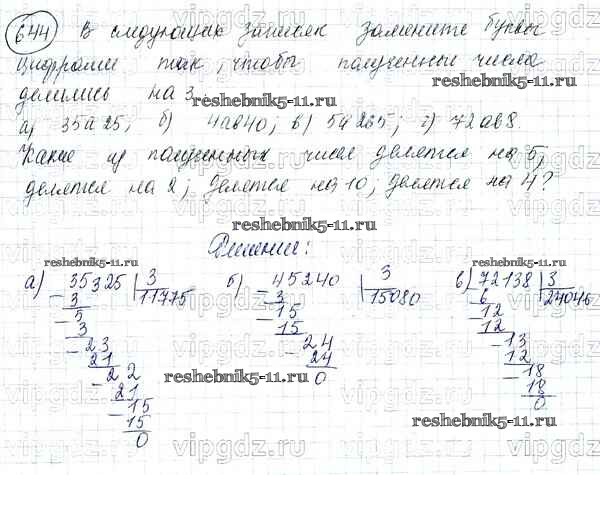 644 В следующих записях замените буквы
цифрами так, чтобы полученные числа
делились на 3
reshebnik5-11.ru
а) 35а25; б) 4ав40; в) 5а265; г) 72ав8.
Какие из полученных чисел делятся на 5,
делятся на 2; делятся на 10; делятся на 4?
reshebnik5-11.ru
Решение:
а) 35325 | 3
11775
3
5
3
23
21
22
21
15
15
0
б) 45240 | 3
15080
3
15
15
24
24
0
в) 72138 | 3
24046
6
12
12
13
12
18
18
0
reshebnik5-11.ru
vipgdz.ru